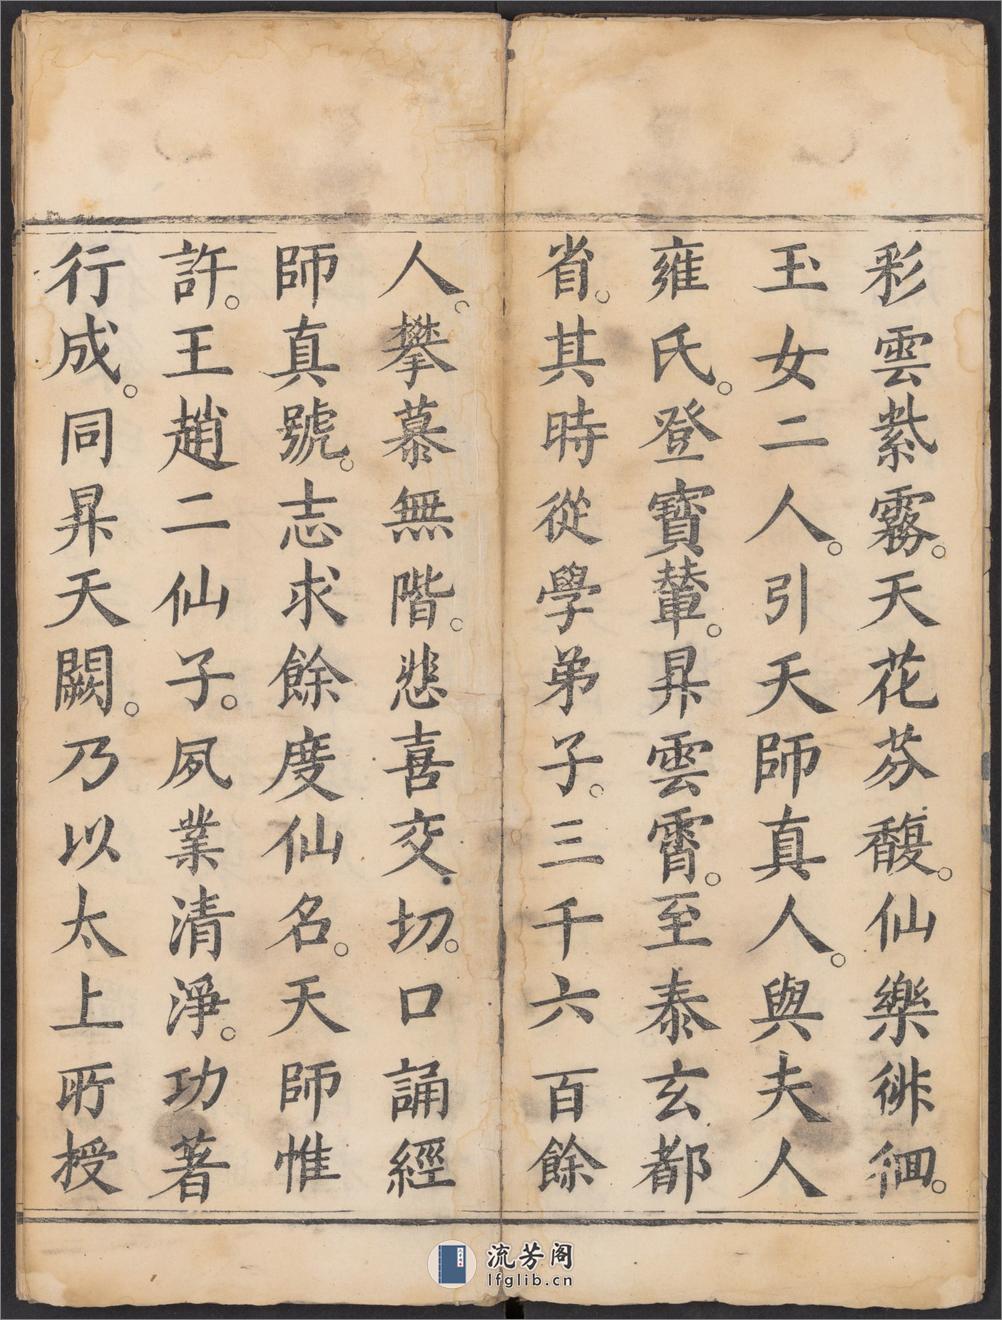 彩雲紫霧。天花芬馥。仙樂徘徊。
玉女二人。引天師真人。與夫人
雍氏。登寶輦。昇雲霄。至泰玄都
省。其時從學弟子。三千六百餘
人。攀慕無階。悲喜交切。口誦經
師真號。志求餘度仙名。天師惟
許。王趙二仙子。夙業清淨。功著
行成。同昇天闕。乃以太上所授
流芳阁
lfglib.cn